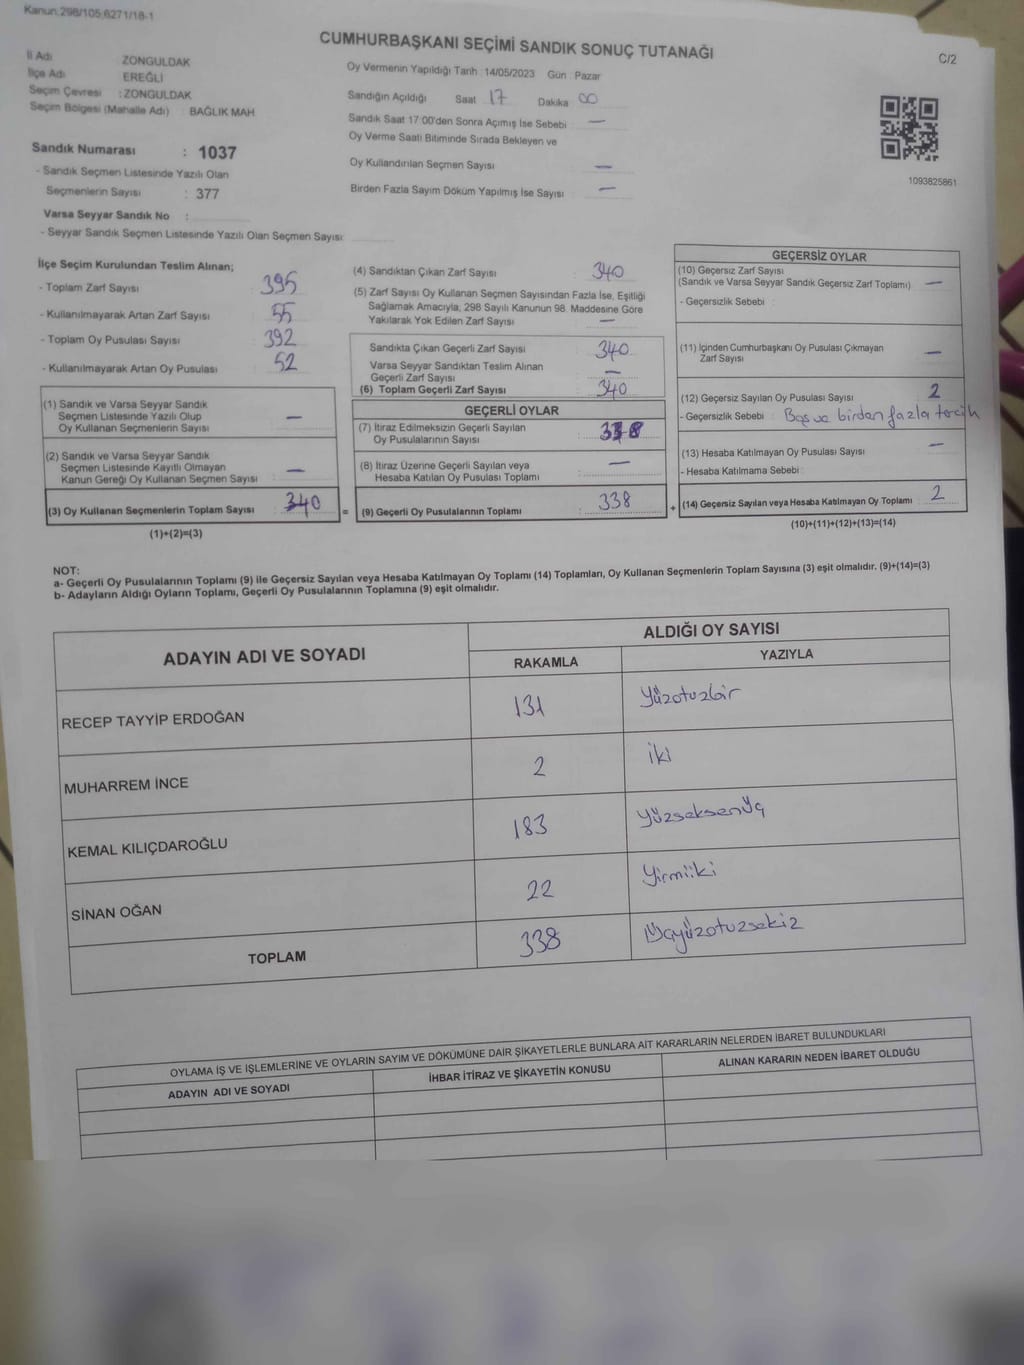 Kanun:298/105;6271/18-1
CUMHURBAŞKANI SEÇİMİ SANDIK SONUÇ TUTANAĞI
C/2
İl Adı ZONGULDAK
İlçe Adı EREĞLİ
Seçim Çevresi : ZONGULDAK
Seçim Bölgesi (Mahalle Adı) BAĞLIK MAH
Oy Vermenin Yapıldığı Tarih : 14/05/2023 Gün : Pazar
Sandığın Açıldığı Saat 17 Dakika 00
Sandık Saat 17:00'den Sonra Açımış İse Sebebi —
Oy Verme Saati Bitiminde Sırada Bekleyen ve
Oy Kullandırılan Seçmen Sayısı —
Birden Fazla Sayım Döküm Yapılmış İse Sayısı —
1093825861
Sandık Numarası : 1037
- Sandık Seçmen Listesinde Yazılı Olan
Seçmenlerin Sayısı : 377
Varsa Seyyar Sandık No :
- Seyyar Sandık Seçmen Listesinde Yazılı Olan Seçmen Sayısı:
İlçe Seçim Kurulundan Teslim Alınan;
- Toplam Zarf Sayısı 395
- Kullanılmayarak Artan Zarf Sayısı 55
- Toplam Oy Pusulası Sayısı 392
- Kullanılmayarak Artan Oy Pusulası 52
(1) Sandık ve Varsa Seyyar Sandık
Seçmen Listesinde Yazılı Olup
Oy Kullanan Seçmenlerin Sayısı —
(2) Sandık ve Varsa Seyyar Sandık
Seçmen Listesinde Kayıtlı Olmayan
Kanun Gereği Oy Kullanan Seçmen Sayısı : —
(3) Oy Kullanan Seçmenlerin Toplam Sayısı 340 =
(1)+(2)=(3)
(4) Sandıktan Çıkan Zarf Sayısı : 340
(5) Zarf Sayısı Oy Kullanan Seçmen Sayısından Fazla İse, Eşitliği
Sağlamak Amacıyla, 298 Sayılı Kanunun 98. Maddesine Göre
Yakılarak Yok Edilen Zarf Sayısı —
Sandıkta Çıkan Geçerli Zarf Sayısı 340
Varsa Seyyar Sandıktan Teslim Alınan
Geçerli Zarf Sayısı —
(6) Toplam Geçerli Zarf Sayısı 340
GEÇERLİ OYLAR
(7) İtiraz Edilmeksizin Geçerli Sayılan
Oy Pusulalarının Sayısı : 338
(8) İtiraz Üzerine Geçerli Sayılan veya
Hesaba Katılan Oy Pusulası Toplamı : —
(9) Geçerli Oy Pusulalarının Toplamı : 338 +
GEÇERSİZ OYLAR
(10) Geçersiz Zarf Sayısı
(Sandık ve Varsa Seyyar Sandık Geçersiz Zarf Toplamı) —
- Geçersizlik Sebebi :
(11) İçinden Cumhurbaşkanı Oy Pusulası Çıkmayan
Zarf Sayısı —
(12) Geçersiz Sayılan Oy Pusulası Sayısı 2
- Geçersizlik Sebebi : Boş ve birden fazla tercih
(13) Hesaba Katılmayan Oy Pusulası Sayısı —
- Hesaba Katılmama Sebebi :
(14) Geçersiz Sayılan veya Hesaba Katılmayan Oy Toplamı : 2
(10)+(11)+(12)+(13)=(14)
NOT:
a- Geçerli Oy Pusulalarının Toplamı (9) ile Geçersiz Sayılan veya Hesaba Katılmayan Oy Toplamı (14) Toplamları, Oy Kullanan Seçmenlerin Toplam Sayısına (3) eşit olmalıdır. (9)+(14)=(3)
b- Adayların Aldığı Oyların Toplamı, Geçerli Oy Pusulalarının Toplamına (9) eşit olmalıdır.
ADAYIN ADI VE SOYADI ALDIĞI OY SAYISI
RAKAMLA YAZIYLA
RECEP TAYYİP ERDOĞAN 131 Yüzotuzbir
MUHARREM İNCE 2 iki
KEMAL KILIÇDAROĞLU 183 Yüzseksenüç
SİNAN OĞAN 22 Yirmiiki
TOPLAM 338 Üçyüzotuzsekiz
OYLAMA İŞ VE İŞLEMLERİNE VE OYLARIN SAYIM VE DÖKÜMÜNE DAİR ŞİKAYETLERLE BUNLARA AİT KARARLARIN NELERDEN İBARET BULUNDUKLARI
ADAYIN ADI VE SOYADI İHBAR İTİRAZ VE ŞİKAYETİN KONUSU ALINAN KARARIN NEDEN İBARET OLDUĞU